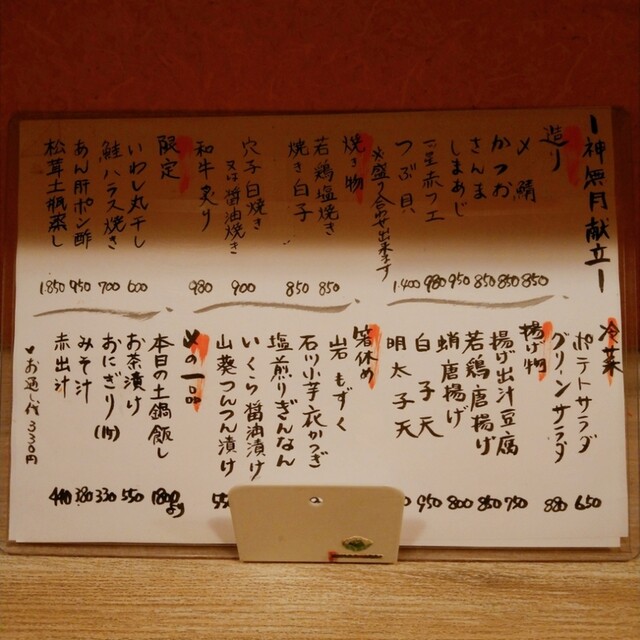 －神無月献立－
造り
〆鯖 850
かつお 850
さんま 850
しまあじ 950
一星赤フエ 980
つぶ貝 1.400
※盛り合わせ出来ます
焼き物
若鶏塩焼き 850
焼き白子 850
穴子白焼き
又は醤油焼き 900
和牛炙り 980
限定
いわし丸干し 600
鮭ハラス焼き 700
あん肝ポン酢 950
松茸土瓶蒸し 1.850
冷菜
ポテトサラダ 650
グリーンサラダ 880
揚げ物
揚げ出汁豆腐 750
若鶏唐揚げ 850
蛸唐揚げ 800
白子天 950
明太子天
箸休め
岩もずく
石川小芋衣かつぎ
塩煎りぎんなん
いくら醤油漬け
山葵つんつん漬け
〆の一品
本日の土鍋飯し 1800より
お茶漬け 550
おにぎり(1ケ) 330
みそ汁 380
赤出汁 440
お通し代330円